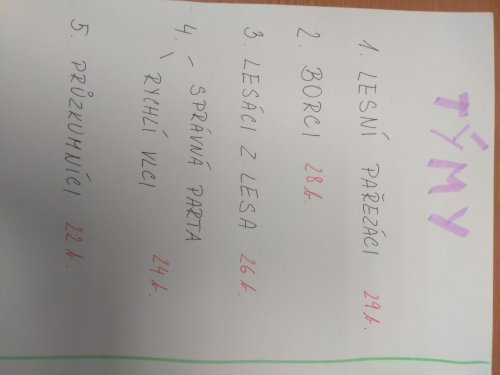 TÝMY
1. LESNÍ PAŘEZÁCI 29 b.
2. BORCI 28 b.
3. LESÁCI Z LESA 26 b.
4. - SPRÁVNÁ PARTA
\ RYCHLÍ VLCI 24 b.
5. PRŮZKUMNÍCI 22 b.